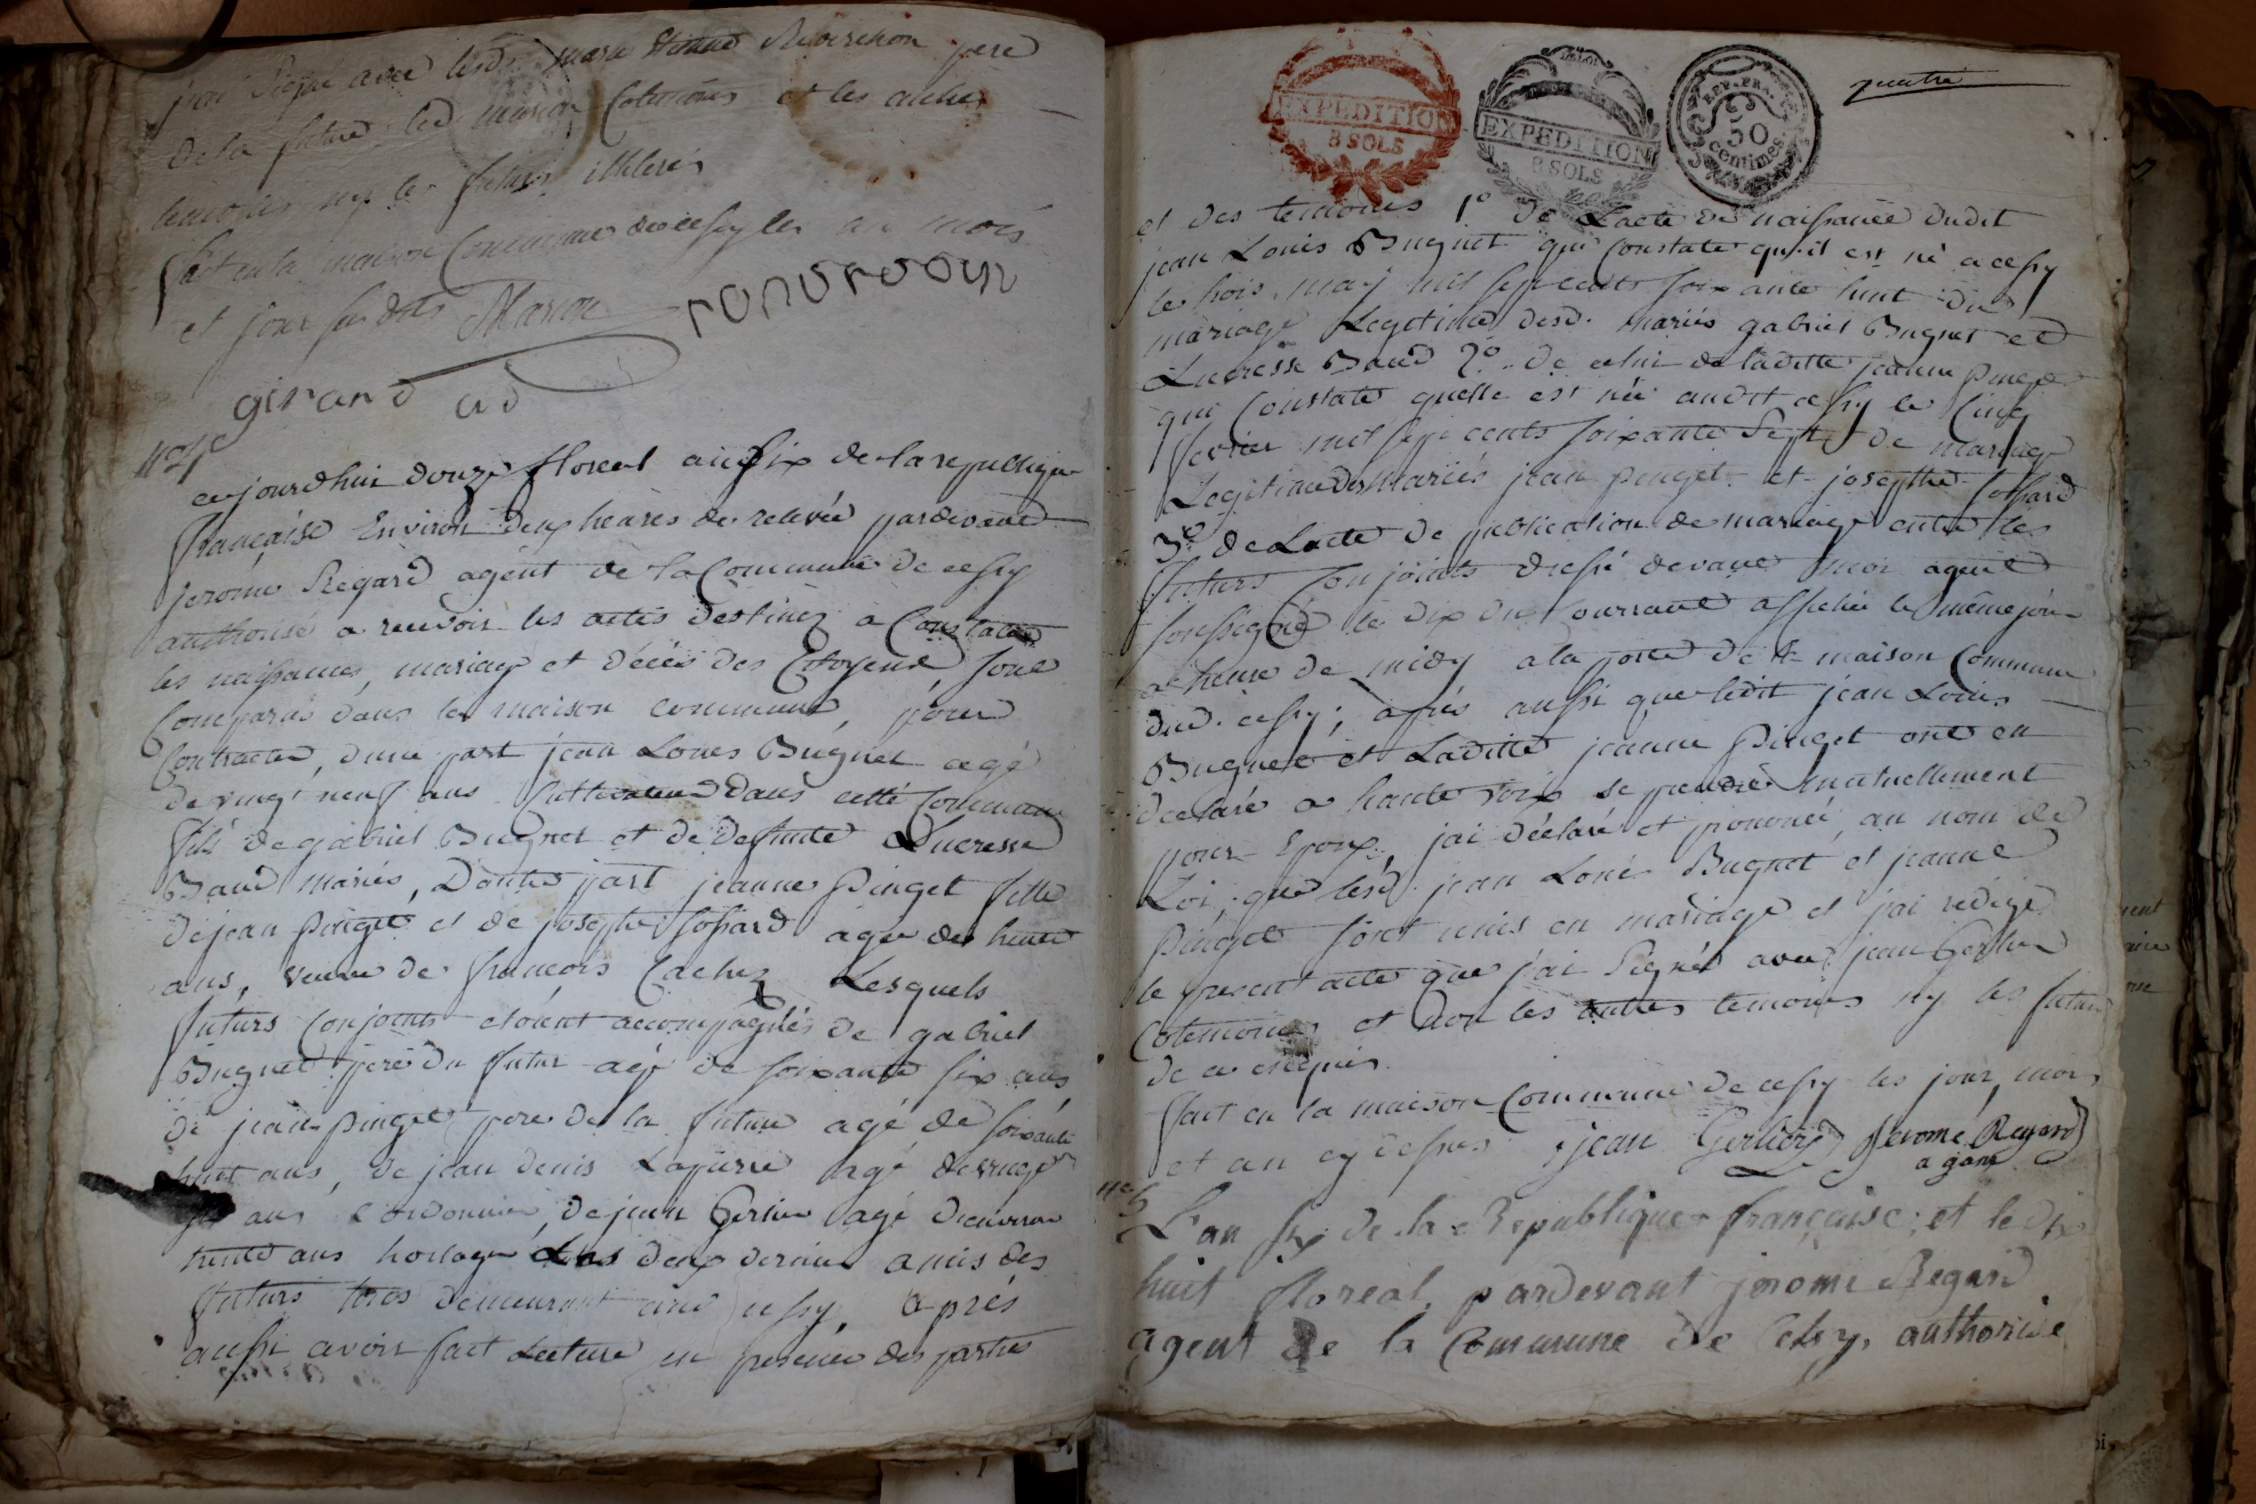 jean Signé avec lesd. marie Etienne Reverchon pere
de la future, led. marion Cotemoins et les autres
temoins ny les futurs illeterés
fait en la maison Commune de cessy les an mois
et jour susdits Marion
girard ad
N.° 4.e
cejourdhuy douze floreal an six de la republique
française Environ deux heures de relevée pardevant
jerome Regard agent de la Commune de cessy
authorisé a recevoir les actes destinez a Constater
les naissances, mariage et décés des Citoyens, sont
Comparus dans la maison commune, pour
Contracter, d'une part jean Louis Bugnet agé
de vingt neuf ans Cultivateur dans cette Commune
fils de gabriel Bugnet et de defunte Lucresse
Baud mariés, D'autre part jeanne Pinget fille
de jean Pinget et de josephte Sossard agée de trente
ans, veuve de françois Cachez Lesquels
futurs Conjoints etoient accompagnés de gabriel
Bugnet pere du futur agé de soixante six ans
de jean pinget pere de la future agé de soixante
huit ans, de jean denis Lapierre agé de vingt
ans Cordonnier, de jean Gerlier agé d'environ
trente ans horloger Les deux derniers amis des
futurs tous demeurant aud cessy, après
aussi avoir fait Lecture en presence des parties
EXPEDITION
8 SOLS
DE LOI
EXPEDITION
8 SOLS
REP. FRA.
50
centimes
quatre
et des temoins 1° de Lacte de naissance dudit
jean Louis Bugnet qui Constate qu'il est né a cessy
le trois may mil sept cents soixante huit du
mariage Legitime desd. mariés gabriel Bugnet et
Lucresse Baud 2° de celui de laditte jeanne pinget
qui Constate quelle est née audit cessy le Cinq
fevrier mil sept cents soixante Sept de mariage
Legitime des Mariés jean pinget et josephte Sossard
3° de Lacte de publication de mariage entre les
futurs Conjoints dressé devant moi agent
soussigné le dix du courrant affichée le même jour
a heure de midy a la porte de la maison Commune
dud. cessy; après aussi que ledit jean Louis
Bugnet et Laditte jeanne Pinget ont eu
declaré a haute voix se prendre mutuellement
pour Epoux, jai déclaré et prononcé, au nom de
Loi, que lesd. jean Louis Bugnet et jeanne
Pinget sont unis en mariage et j'ai redigé
le present acte que j'ai Signé avec jean Gerlier
Cotemoins et non les autres temoins ny les futurs
de ce enquis.
fait en la maison Commune de cessy les jour, mois
et an cy dessus jean Gerlier Jerome Regard
agant
N.° 5
L'an six de la Republique française, et le dix
huit floreal, pardevant jerome Regard
agent de la Commune de Cessy, authorisé